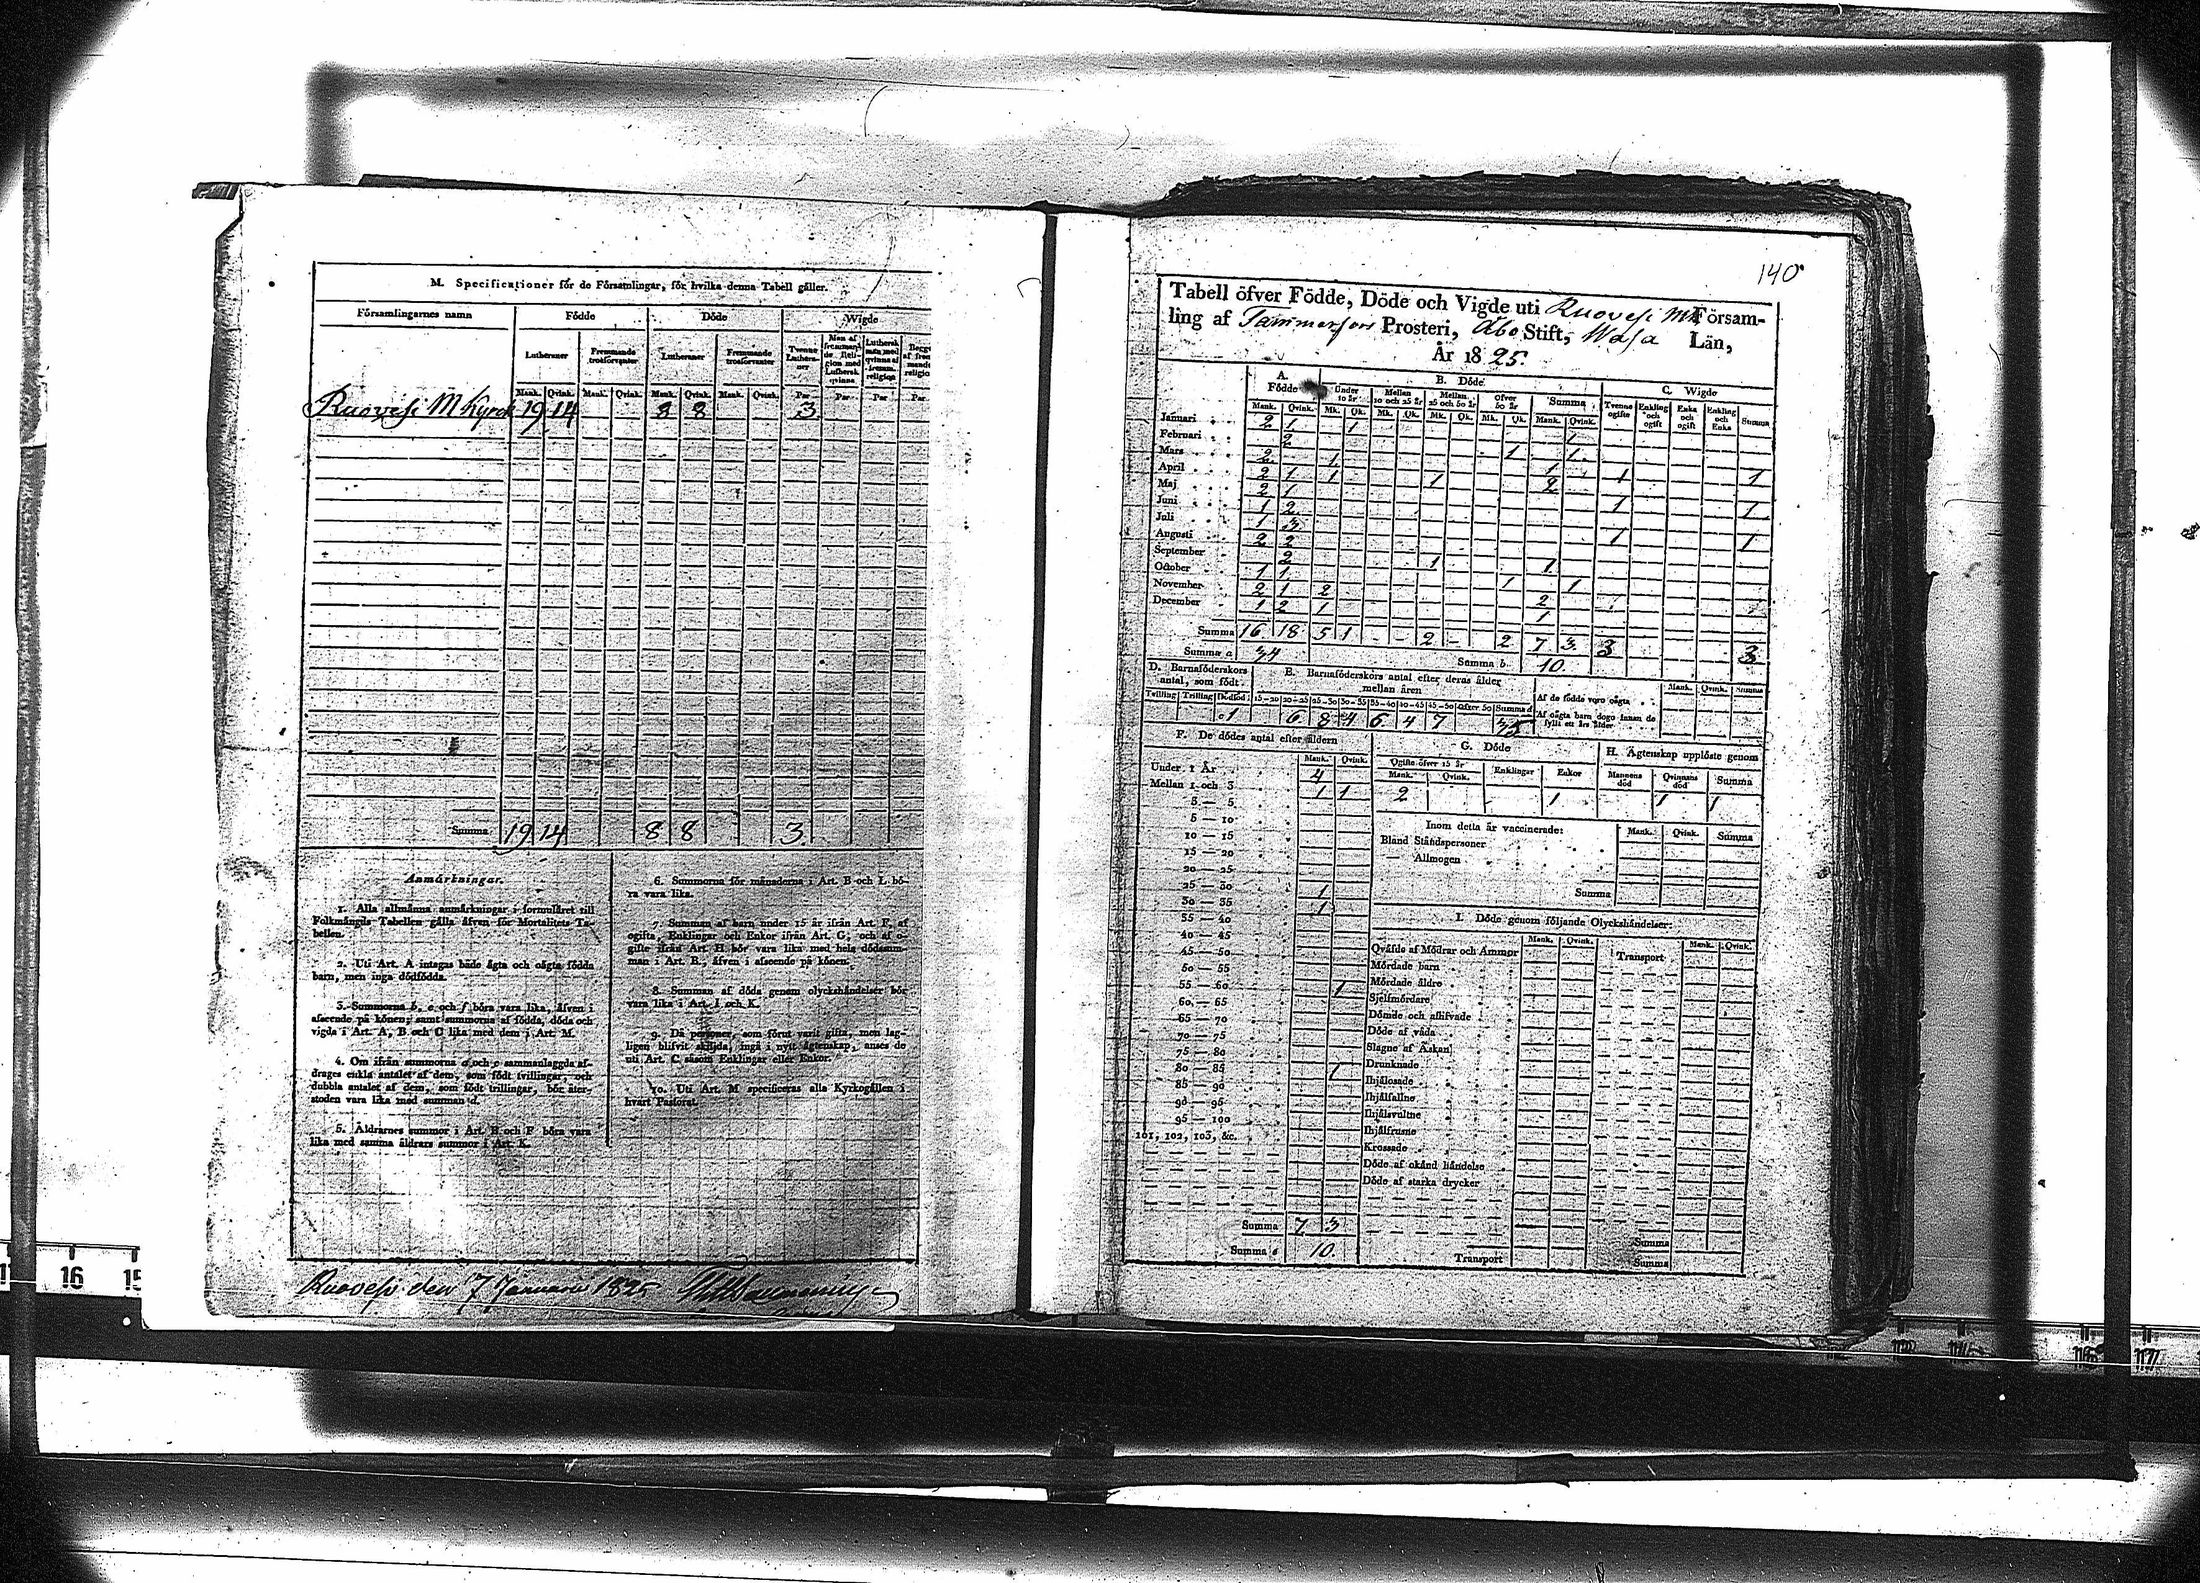 M. Specificationer för de Församlingar, för hvilka denna Tabell gäller.
Församlingarnes namn Födde Döde Wigde
Lutheraner Fremmande trosförvanter Lutheraner Fremmande trosförvanter Tvenne Lutheraner
Mank. Qvink. Mank. Qvink. Mank. Qvink. Mank. Qvink. Par Par Par Par
Ruovesi M Kyrck 19 14 8 8 3
Summa 19 14 8 8 3
Anmärkningar.
1. Alla allmänna anmärkningar i formuläret till
Folkmängds-Tabellen gälla äfven för Mortalitets-Ta-
bellen.
2. Uti Art. A intagas både ägta och oägta födda
barn, men inga dödfödda.
3. Summorna b, e och f böra vara lika, äfven i
afseende på könen; samt summorna af födda, döda och
vigda i Art. A, B och C lika med dem i Art. M.
4. Om ifrån summorna a och c sammanlaggda af-
drages enkla antalet af dem, som födt tvillingar, och
dubbla antalet af dem, som födt trillingar, bör åter-
stoden vara lika med summan d.
5. Åldrarnes summor i Art. B och F böra vara
lika med samma åldrars summor i Art. K.
6. Summorna för månaderna i Art. B och L bö-
ra vara lika.
7. Summan af barn under 15 år ifrån Art. F, af
ogifta, Enklingar och Enkor ifrån Art. G, och af
gifte ifrån Art. H bör vara lika med hela dödssum-
man i Art. B, äfven i afseende på könen.
8. Summan af döda genom olyckshändelser bör
vara lika i Art. I och K.
9. Då personer, som förut varit gifta, men lag-
ligen blifvit skiljda, ingå i nytt ägtenskap, anses de
uti Art. C såsom Enklingar eller Enkor.
10. Uti Art. M specificeras alla Kyrkogällen i
hvart Pastorat.
Ruovesi den 7 Januarii 1825
140
Tabell öfver Födde, Döde och Vigde uti Ruovesi M Försam-
ling af Tammerfors Prosteri, Åbo Stift, Wasa Län,
År 1825.
A. Födde B. Döde C. Wigde
Under 10 år Mellan 10 och 25 år Mellan 25 och 50 år Öfver 50 år Summa Tvenne ogifte Enkling och ogift Enka och ogift Enkling och Enka Summa
Mank. Qvink. Mk. Qk. Mk. Qk. Mk. Qk. Mk. Qk. Mank. Qvink.
Januari 2 1 1 1
Februari 2 1 1
Mars 2 1 1
April 2 1 1 1 2 1 1
Maj 2 1
Juni 1 2 1 1
Juli 1 3
Augusti 2 2 1 1
September 2 1 1
October 1 1 1 1
November 2 1 2 2
December 1 2 1 1
Summa 16 18 5 1 - - 2 - 2 7 3 3 3
Summa a 34 Summa b 10
D. Barnaföderskors antal, som födt. E. Barnaföderskors antal efter deras ålder mellan åren
Tvilling Trilling Dödföd. 15—20 20—25 25—30 30—35 35—40 40—45 45—50 Öfver 50 Summa d
1 6 8 4 6 4 7 35
Mank. Qvink. Summa
Af de födde voro oägta
Af oägta barn dogo innan de fyllt ett års ålder
F. De dödes antal efter åldern
Mank. Qvink.
Under 1 År 4
Mellan 1 och 3 1 1
3 — 5
5 — 10
10 — 15
15 — 20
20 — 25
25 — 30 1
30 — 35 1
35 — 40
40 — 45
45 — 50
50 — 55
55 — 60 1
60 — 65
65 — 70
70 — 75
75 — 80
80 — 85 1
85 — 90
90 — 95
95 — 100
101, 102, 103, &c.
Summa 7 3
Summa e 10
G. Döde
Ogifte öfver 15 år Enklingar Enkor
Mank. Qvink.
2 1
H. Ägtenskap upplöste genom
Mannens död Qvinnans död Summa
1 1
Inom detta år vaccinerade: Mank. Qvink. Summa
Bland Ståndspersoner
— Allmogen
Summa
I. Döde genom följande Olyckshändelser:
Mank. Qvink. Mank. Qvink.
Qväfde af Mödrar och Ammor Transport
Mördade barn
Mördade äldre
Sjelfmördare
Dömde och aflifvade
Döde af våda
Slagne af Åskan
Drunknade
Ihjälosade
Ihjälfallne
Ihjälsvultne
Ihjälfrusne
Krossade
Döde af okänd händelse
Döde af starka drycker
Summa
Transport Summa